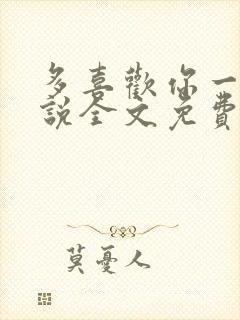 多喜歡你一
說全文免費
莫憂人